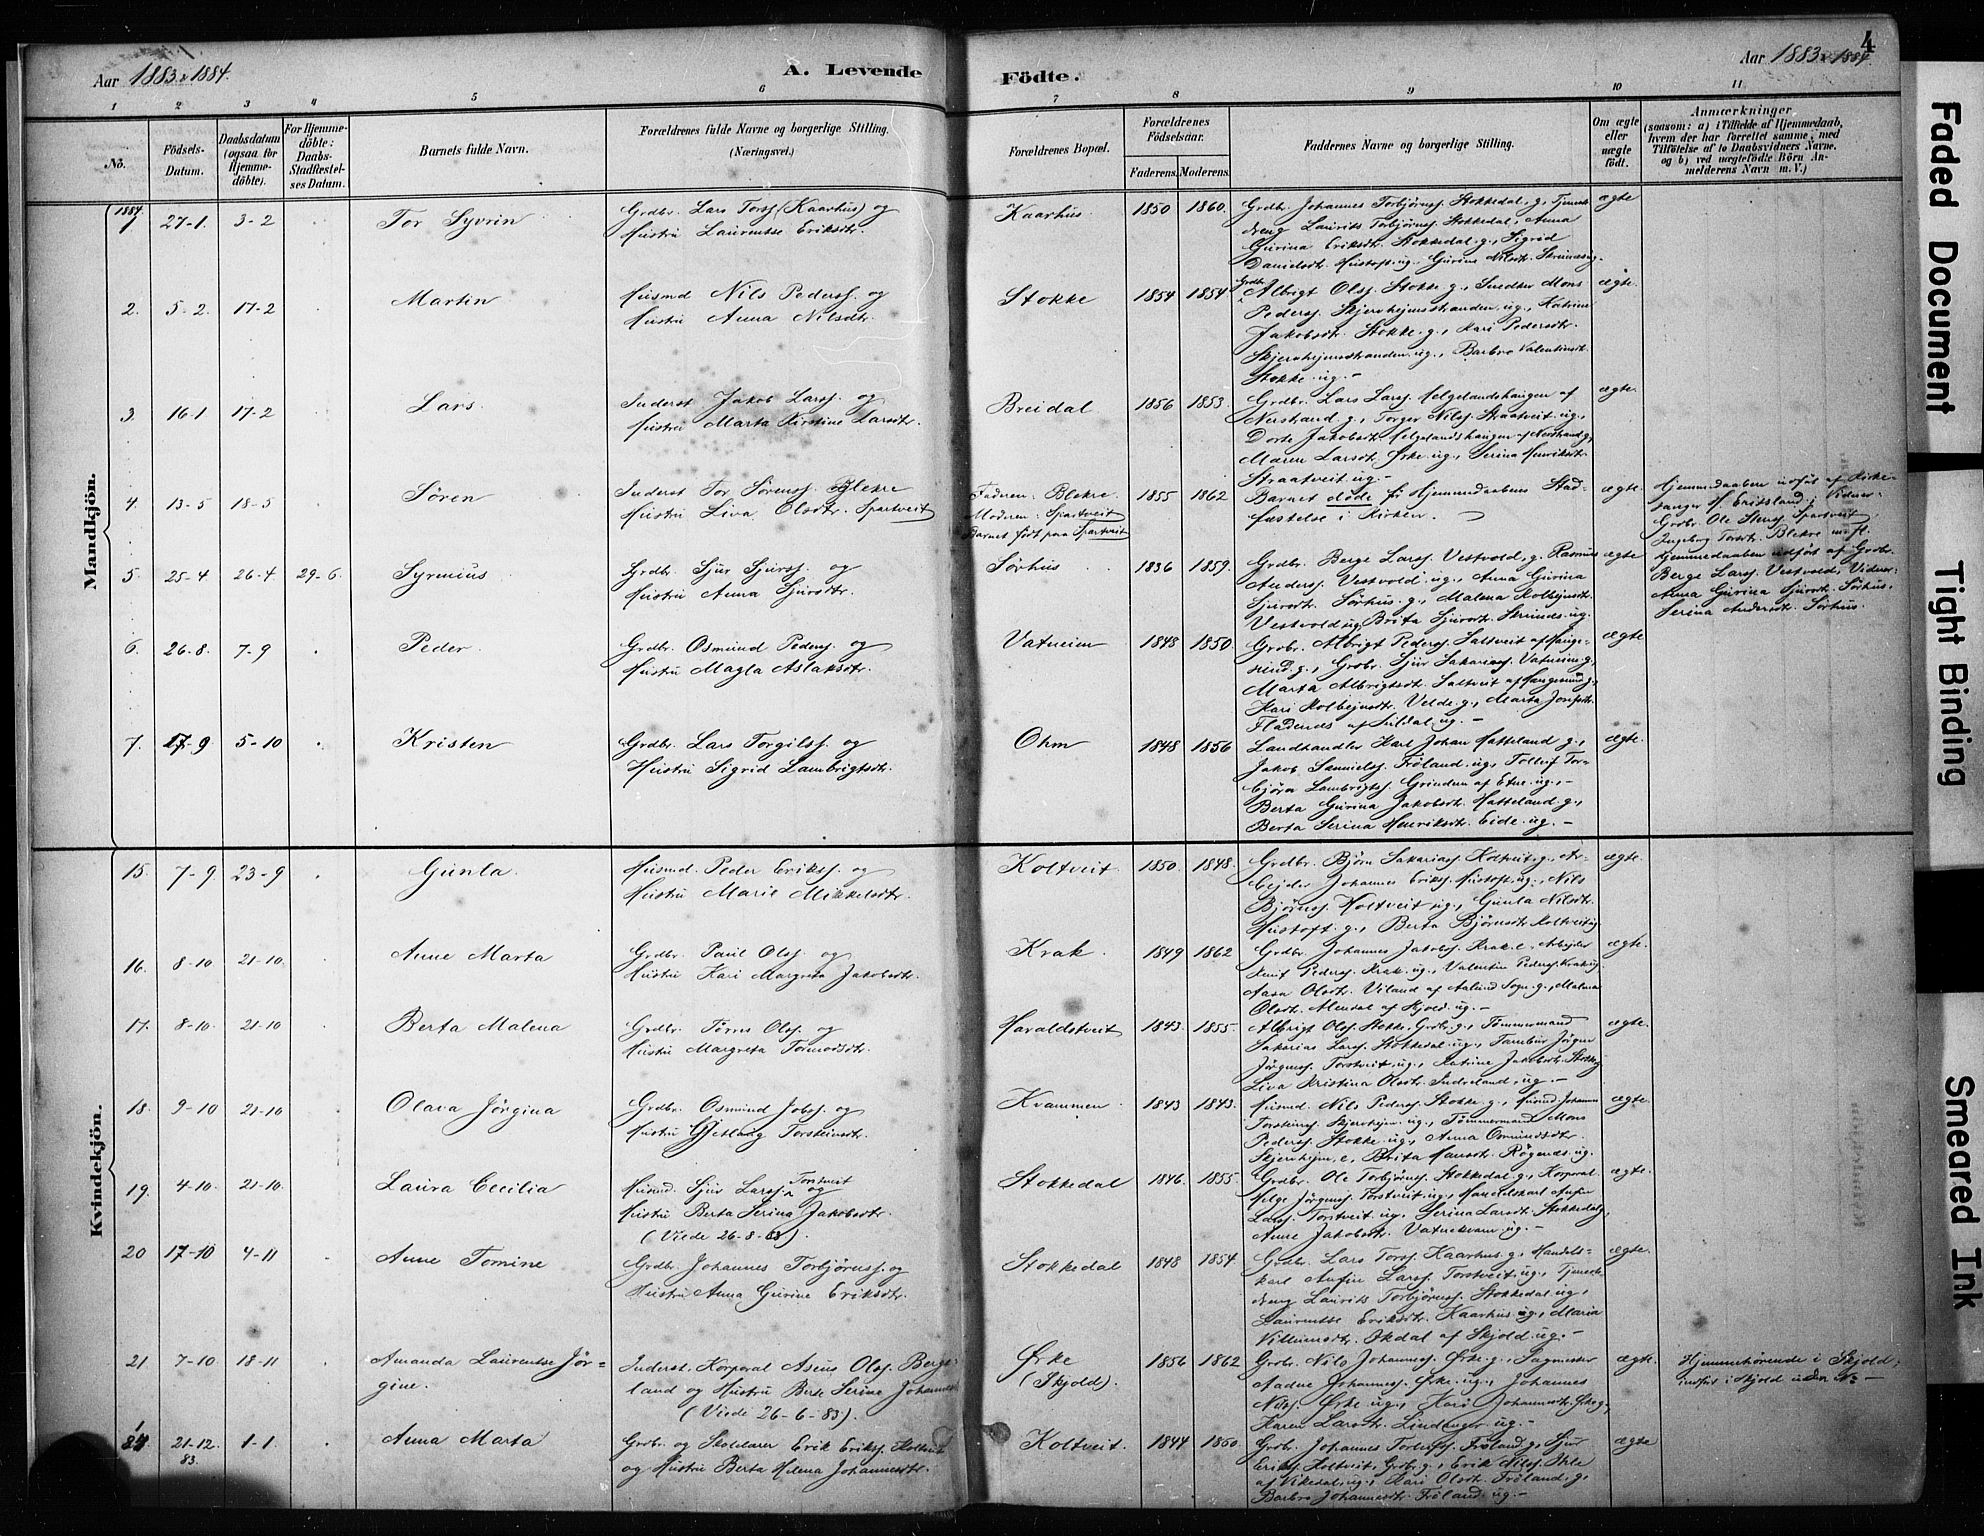 Aar 1883 & 1884.
A. Levende Födte.
Aar 1883 & 1884.
4
1 2 3 4 5 6 7 8 9 10 11
No.
Födsels-Datum.
Daabsdatum (ogsaa for Hjemmedöbte).
For Hjemmedöbte: Daabs-Stadfæstelses Datum.
Barnets fulde Navn.
Forældrenes fulde Navne og borgerlige Stilling.
(Næringsvei.)
Forældrenes Bopæl.
Forældrenes Födselsaar.
Faderens. Moderens.
Faddernes Navne og borgerlige Stilling.
Om ægte eller uægte födt.
Anmærkninger
(saasom: a) i Tilfælde af Hjemmedaab, hvem der har forrettet samme, med Tilföielse af to Daabsvidners Navne. og b) ved uægtefödte Börn Anmelderens Navn m. V.)
Mandkjön.
1884.
1 27-1. 3-2 Tor Syvrin
Grdbr. Lars Torss. (Kaarhus) og
Hustru Laurentse Eriksdtr.
Kaarhus 1850 1860.
Grdbr. Johannes Torbjørnss. Stokkedal, g., Tjeneste-
dreng Laurits Torbjørnss. Stokkedal, Anna
Gurina Eriksdtr. Stokkedal g., Sigrid
Danielsdtr. Hustoft ug., Gurine Nilsdtr.
ægte
2. 5-2. 17-2 Martin
Husmd Nils Pederss. og
Hustru Anna Nilsdtr.
Stokke 1854 1854
Grdbr. Albrigt Olss. Stokke g., Snedker Mons
Pederss. Skjernhejmsstranden ug., Katrine
Jakobsdtr. Stokke g., Kari Pedersdtr.
Skjernhejmsstranden ug., Barbro Valentinsdtr.
Stokke ug. -
ægte.
3. 16-1 17-2 Lars
Inderst Jakob Larss. og
Hustru Marta Kirstine Larsdtr.
Breidal 1856 1853.
Grdbr. Lars Larss. Helgelandshaugen af
Nerstrand g., Torger Nilss. Straatveit ug.,
Dorte Jakobsdtr. Helgelandshaugen af Nerstrand g.,
Maren Larsdtr. Ørke ug., Serina Henriksdtr.
Straatveit ug. -
ægte.
4. 13-5 18-5 Søren
Inderst Tor Sørenss. Blekre
Hustru Liva Olsdtr. Spartveit
Faderen: Blekre.
Moderen: Spartveit
Barnet født paa Spartveit
1855 1862
Barnet døde før Hjemmedaabens Stad-
fæstelse i Kirken.
ægte.
Hjemmedaaben udført af Kirke-
sanger H. Eritsland; Vidner:
Grdbr. Ole Stenss. Spartveit
Ingeborg Torsdtr. Blekre m. fl.
5. 25-4 26-4 29-6. Syrenius
Grdbr. Sjur Sjurss. og
Hustru Anna Sjursdtr.
Sørhus 1836 1859.
Grdbr. Berge Larss. Vestvold, g. Rasmus
Anderss. Vestvold ug., Anna Gurina
Sjursdtr. Sørhus g., Malena Kolbejnsdtr.
Vestvold ug., Brita Sjursdtr. ug.
ægte
Hjemmedaaben udført af Grdbr.
Berge Larss. Vestvold, Vidner:
Anna Gurina Sjursdtr. Sørhus,
Serina Andersdtr. Sørhus.
6. 26-8. 7-9 Peder
Grdbr. Osmund Pederss. og
Hustru Magla Aslaksdtr.
Vatneim 1848 1850
Grdbr. Albrigt Pederss. Saltveit af Hauge-
sund g., Grdbr. Sjur Sakariass. Vatneim g.,
Marta Albrigtsdtr. Saltveit af Haugesund g.,
Kari Kolbejnsdtr. Velde g., Marta Josefsdtr.
Fladenes af Suldal ug. -
ægte.
7. 17-9 5-10 Kristen
Grdbr. Lars Torgilss. og
Hustru Sigrid Lambrigtsdtr.
Ohm 1848 1856
Landhandler Karl Johan Hatteland g.,
Jakob Samuelss. Frøland ug., Tollef Tor-
bjørn Lambrigtss. Grinden af Etne ug.,
Berta Gurina Jakobsdtr. Hatteland g.,
Berta Serina Henriksdtr. Eide ug. -
ægte.
Kvindekjön.
15. 7-9 23-9 Gunla.
Husmd. Peder Erikss. og
Hustru Marie Mikkelsdtr.
Koltveit 1850. 1848.
Grdbr. Bjørn Sakariass. Koltveit g., Ar-
bejder Johannes Erikss. Hustoft ug., Nils
Bjørnss. Koltveit ug., Gunla Nilsdtr.
Hustoft g., Berta Bjørnsdtr. Koltveit ug.
ægte.
16. 8-10 21-10. Anne Marta
Grdbr. Paul Olss. og
Hustru Kari Margreta Jakobsdtr.
Krak. 1849 1862
Grdbr. Johannes Jakobss. Krak e., Arbejder
Knut Pederss. Krak ug., Valentin Pederss. Krak ug.
Aasa Olsdtr. Viland af Aalund Sogn g., Malena
Olsdtr. Alendal af Skjold ug. -
ægte.
17. 8-10 21-10 Berta Malena
Grdbr. Tørres Olss. og
Hustru Margreta Tormodsdtr.
Haraldstveit 1843. 1855.
Albrigt Olss. Stokke, Grdbr. g., Tømmermand
Sakarias Larss. Stokkedal ug., Tambur Jørgen
Jørgenss. Torstveit ug., Katrine Jakobsdtr. Stokke g.
Liva Kristina Olsdtr. Indreland, ug. -
ægte.
18. 9-10 21-10 Olava Jørgina
Grdbr. Osmund Jobss. og
Hustru Gjetlaug Torsteinsdtr.
Kvammen 1843 1843.
Husmd. Nils Pederss. Stokke g., Husmd. Johannes
Torsteinss. Skjernhejm ug., Tømmermand Mons
Pederss. Stokke ug., Anna Osmundsdtr.
Skjernhejm, e., Brita Hansdtr. Røgenæs ug.
ægte.
19. 4-10. 21-10. Laura Cecilia
Husmd. Sjur Larss. Torstveit og
Hustru Berta Serina Jakobsdtr.
(Viede 26-8-83).
Stokkedal 1846. 1855.
Grdbr. Ole Torbjørnss. Stokkedal g., Korporal
Helge Jørgenss. Torstveit ug., Handelskarl Anfin
Larss. Torstveit ug., Serina Larsdtr. Stokkedal g.,
Anne Jakobsdtr. Vatnekvam ug. -
ægte.
20 17-10 4-11 Anne Tomine
Grdbr. Johannes Torbjørnss. og
Hustru Anna Gurine Eriksdtr.
Stokkedal 1848 1854.
Grdbr. Lars Torss. Kaarhus g., Handels-
karl Anfin Larss. Torstveit ug., Tjeneste-
dreng Laurits Torbjørnss. Stokkedal ug.,
Laurentse Eriksdtr. Kaarhus ug., Maria
Villumsdtr. Økdal af Skjold ug. -
ægte.
21 7-10 18-11 Amanda Laurentse Jør-
gine.
Inderst, Korporal Aseus Olss. Bergs-
land og Hustru Berte Serine Johannesdtr.
(Viede 26-6-83).
Ørke
(Skjold).
1856 1862
Grdbr. Nils Johanness. Ørke g., Sagmester
Aadne Johanness. Ørke ug., Johannes
Nilss. Ørke ug., Kari Johannesdtr. Ørke g.,
Karen Larsdtr. Lindanger ug. -
ægte.
Hjemmehørende i Skjold,
indført i Skjold uden No -
1
84 21-12. 83. 1-1 Anna Marta
Grdbr. og Skolelærer Erik Erikss. Koltveit
og Hustru Berta Helena Johannesdtr.
Koltveit. 1844 1860
Grdbr. Johannes Torlefss. Frøland g., Sjur
Erikss. Koltveit, Grdbr. g., Erik Nilss.
af Vikedal, ug., Kari Olsdtr. Frøland, g.,
Barbro Johannesdtr. Frøland ug. -
ægte
Faded Document
Tight Binding
Smeared Ink